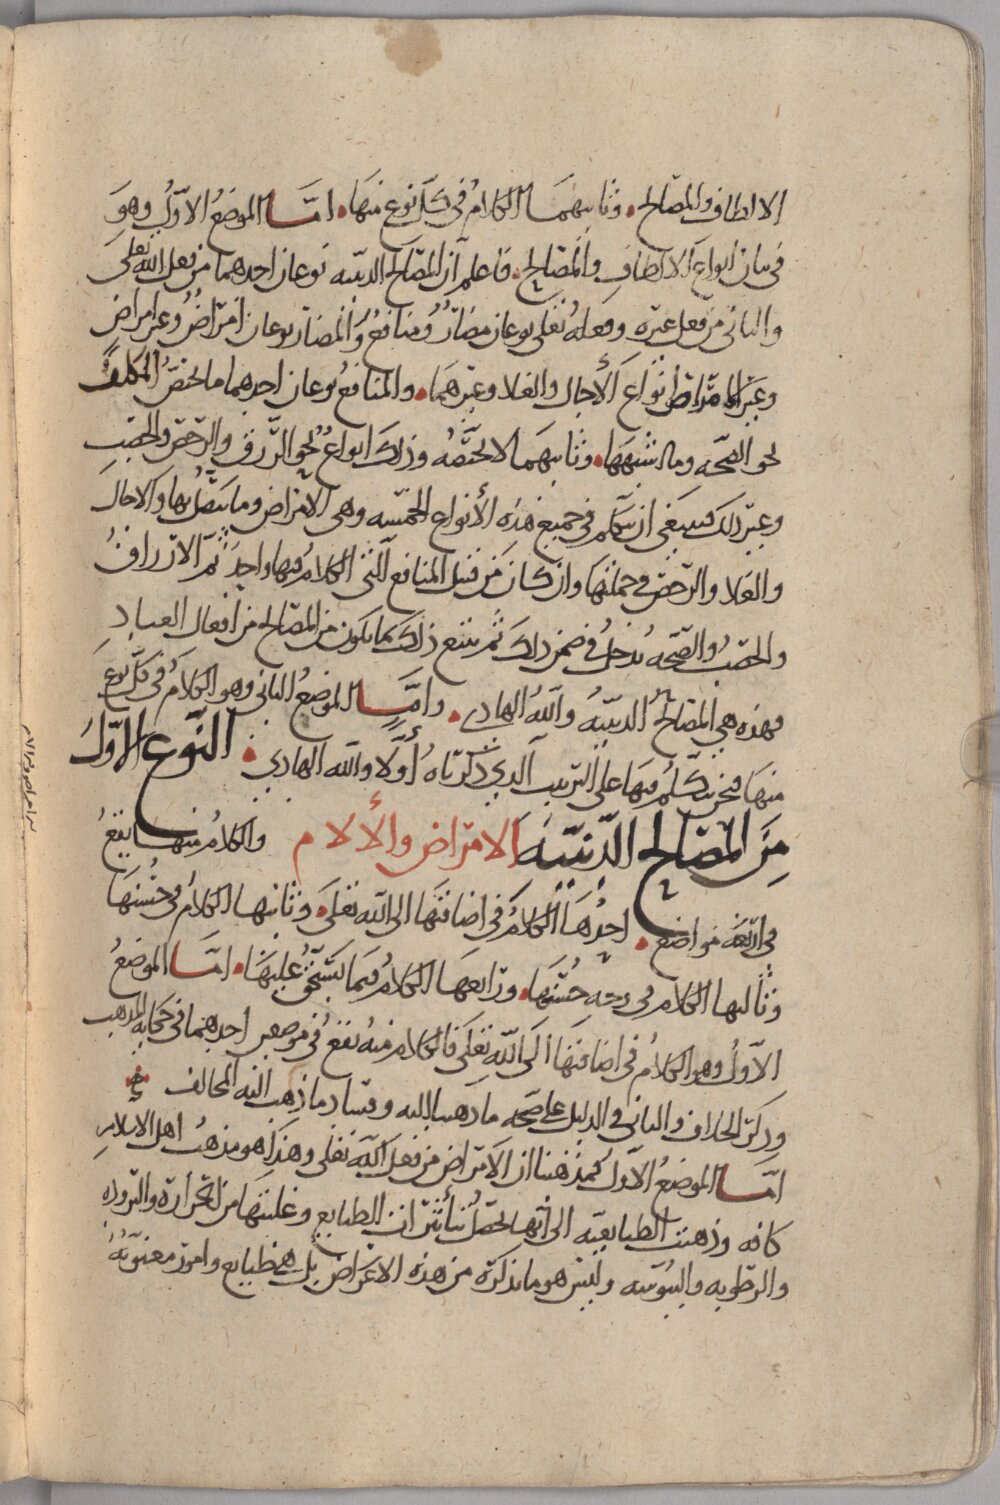 الالطاف والمصالح. وثانيهما الكلام في كل نوع منها. امّا الموضع الاوّل وهو
في بيان انواع الالطاف والمصالح. فاعلم ان المصالح الدينيه نوعان احدهما من فعل الله تعلى
والثاني من فعل غيره وفعله تعلى نوعان مضار ومنافع والمضار نوعان امراض وغير امراض
وغير الامراض انواع كالأجال والغلا وغيرهما. والمنافع نوعان احدهما ما يخص المكلف
نحو الصحه وما شبهها. وثانيهما لا تخصّه وذلك انواع نحو الرزق والرخص والخصب
وغير ذلك فينبغي ان نتكلم في جميع هذه الأنواع الخمسه وهي الامراض وما يتصل بها والاجال
والغلا والرخص في جملتها وان كان من قبيل المنافع التي الكلام فيها واحد ثم الارزاق
والخصب والصحه يدخل في ضمن ذلك ثم نتبع ذلك بما يكون من المصالح من افعال العباد
فهذه هي المصالح الدينيه والله الهادي. وامّا الموضع الثاني وهو الكلام في كل نوع
منها فنحن نتكلم فيها على الترتيب الذي ذكرناه أولا والله الهادي. النوع الاول
من المصالح الدينيه الامراض والألام والكلام منها يقع
في اربعه مواضع. احدها الكلام في اضافتها الى الله تعلى. وثانيها الكلام في حسنها
وثالثها الكلام في وجه حسنها. ورابعها الكلام فيما يستحق عليها. امّا الموضع
الاول وهو الكلام في اضافتها الى الله تعلى فالكلام منه يقع في موضعين احدهما في حكايه المذهب
وذكر الخلاف والثاني في الدليل على صحه ما ذهبنا اليه وفساد ما ذهب اليه المخالف
امّا الموضع الاول فمذهبنا ان الامراض من فعل الله تعلى وهذا هو مذهب اهل الاسلام
كافه وذهبت الطبايعيه الى انها تحصل بتأثيرات الطبايع وغلبتها من الحراره والبروده
والرطوبه واليبوسه وليس هو ما نذكره من هذه الاعراض بل هي طبايع وامور معنويه